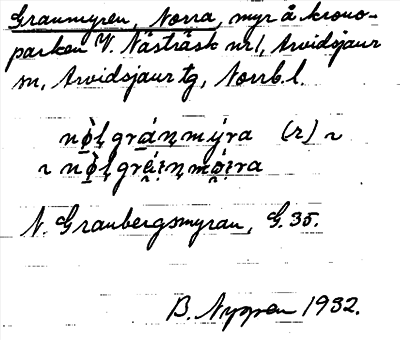 Granmyren, Norra, myr å krono-
parken V. Nåsträsk nr 1, Arvidsjaur
sn, Arvidsjaur tg, Norrb. l.
nø̀ḷgránmýra (r) ~
~ nø̀ḷgrái̯nmǿ̣i̯ra
N. Granbergsmyran, G. 35.
B. Nygren 1932.